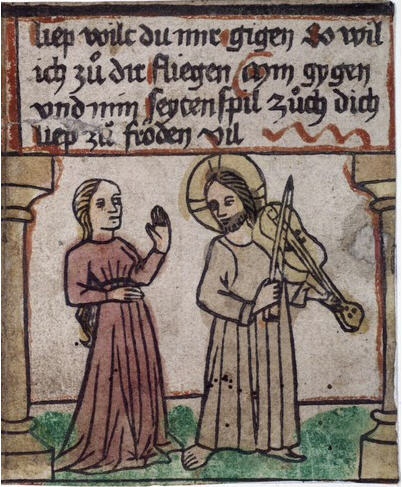 liep wilt du mir gigen So wil
ich zů dir fliegen Min gygen
vnd min seytenspil zůch dich
liep zů fröden vil